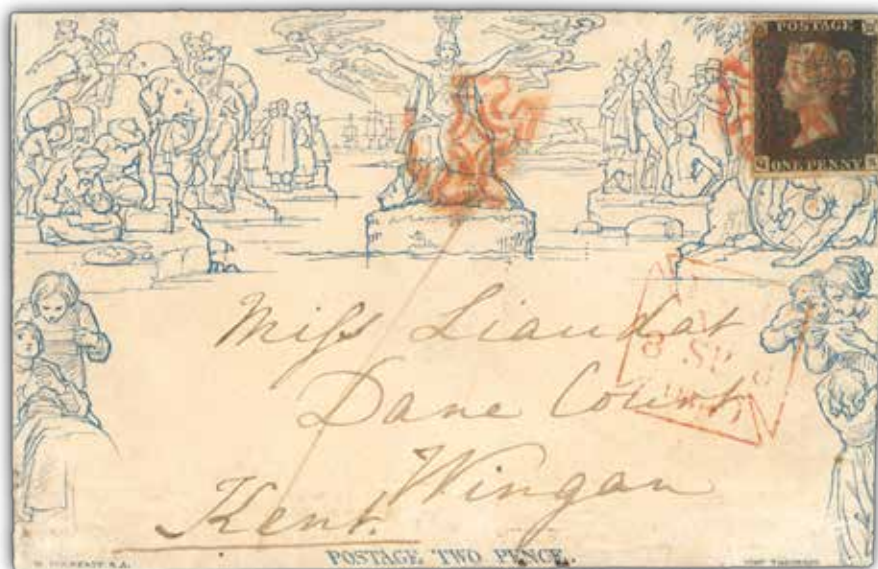 POSTAGE
ONE PENNY
Miss Liaudat
Dane Court,
Wingan
Kent.
POSTAGE TWO PENCE.